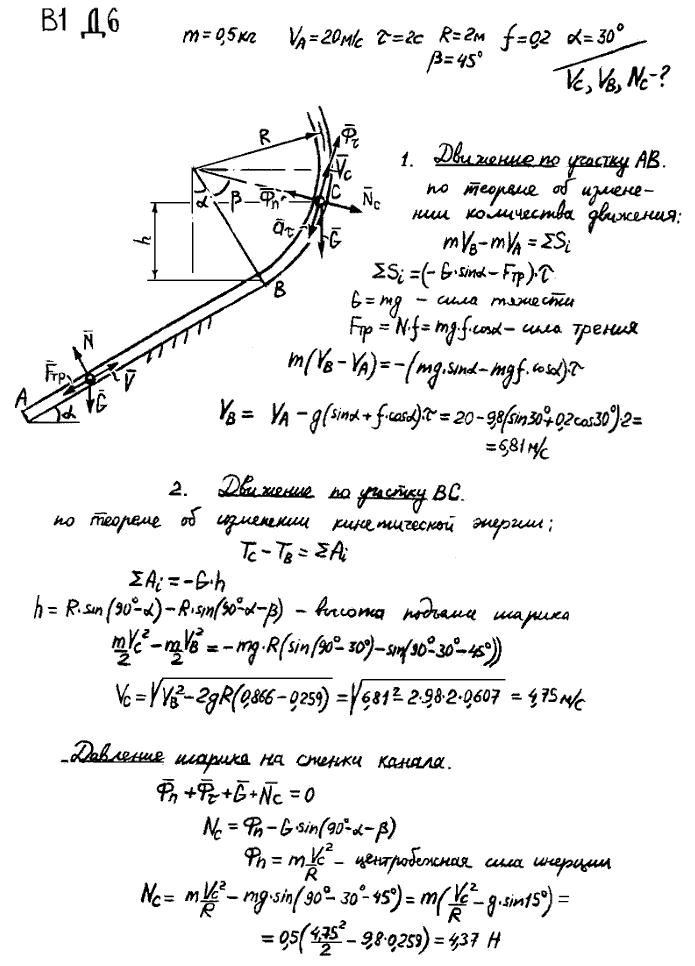 В1 Д6
m=0,5кг V_A=20м/с τ=2с R=2м f=0,2 α=30°
β=45°
V_C, V_B, N_C-?
R
Φ̄_τ
V̄_C
C
N̄_C
α
β
Φ̄_n
h
ā_τ
Ḡ
B
N̄
F̄_тр
V̄
Ḡ
A
α
1. Движение по участку АВ.
по теореме об измене-
нии количества движения:
mV_B-mV_A=ΣS_i
ΣS_i=(-G·sinα-F_тр)·τ
G=mg - сила тяжести
F_тр=N·f=mg·f·cosα- сила трения
m(V_B-V_A)=-(mg·sinα-mgf·cosα)·τ
V_B= V_A-g(sinα+f·cosα)·τ=20-9,8(sin30°+0,2cos30°)·2=
=6,81м/с
2. Движение по участку ВС.
по теореме об изменении кинетической энергии:
T_C-T_B=ΣA_i
ΣA_i=-G·h
h=R·sin(90°-α)-R·sin(90°-α-β) - высота подъема шарика
mV_C²/2-mV_B²/2=-mg·R(sin(90°-30°)-sin(90°-30°-45°))
V_C=√(V_B²-2gR(0,866-0,259))=√(6,81²-2·9,8·2·0,607)=4,75м/с
-Давление шарика на стенки канала.
Φ̄_n+Φ̄_τ+Ḡ+N̄_C=0
N_C=Φ_n-G·sin(90°-α-β)
Φ_n=m V_C²/R - центробежная сила инерции
N_C= m V_C²/R-mg·sin(90°-30°-45°)=m(V_C²/R-g·sin15°)=
=0,5(4,75²/2-9,8·0,259)=4,37 Н